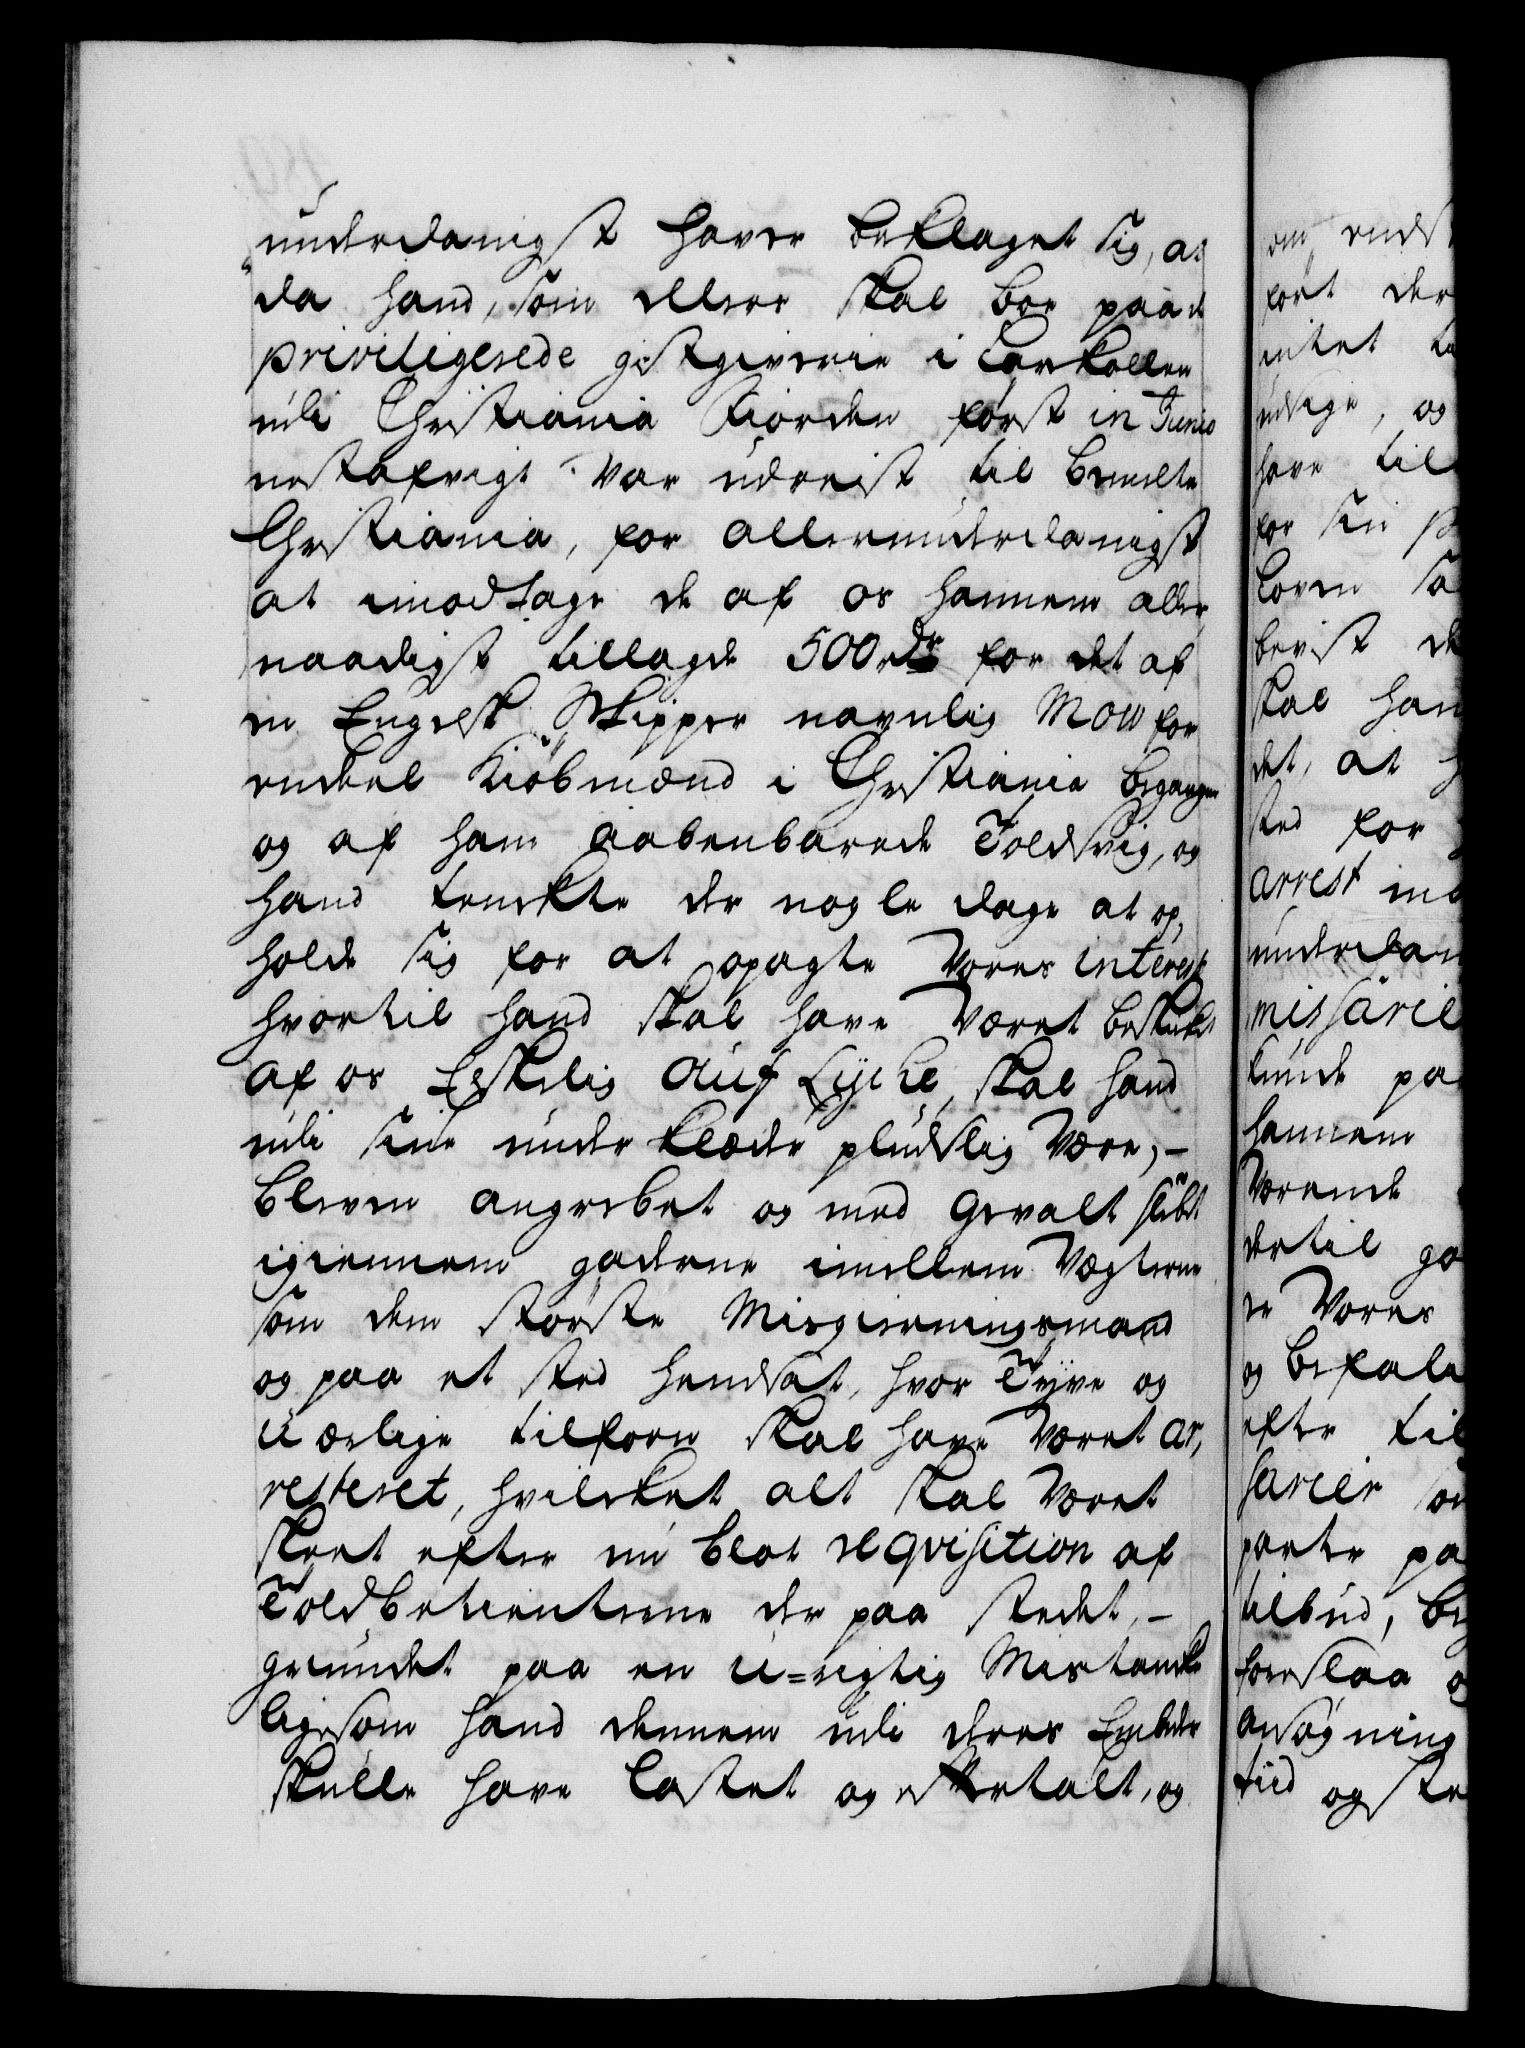 underdanigst haver beklaget sig, at
da hand, som ellers skal boe paa et
Priviligerede gestgiverie i Larkollen
udi Christiania Fiorden først in Junio
nestafvigt var udreist til bemelte
Christiania, for allerunderdanigst
at imodtage de af os hannem aller
naadigst tillagde 500 rdr for det af
en Engelsk Skipper navnlig Mow for
endeel Kiöbmænd i Christiania begangne
og af ham aabenbarede Toldsvig, og
hand tenckte der nogle dage at op,
holde sig for at opagte Vores interesse
hvortil hand skal have været beskicket
af os Elskelig Auf Lycke, skal hand
udi sine under klæder pludslig være,-
bleven angrebet og med gevalt slæbt
igiennem gaderne imellem Vægterne
som den største Misgierningsmand
og paa et sted hendsat, hvor Tyve og
U ærlige tilforn skal have været ar,
resteret, hvilcket alt skal været
skeet efter en blot reqvisition af
Toldbetienterne der paa stedet,-
grundet paa en u=rigtig Mistancke
ligesom hand dennem udi deres Embede
skulle have lastet og eskertalt, og
om ends
ført der
intet
udsige, og
have til
for sin
Loven
bevist de
skal han
det, at
sted for
arrest
underdan
missarie
kunde pa
hannem
Værende
dertil
de Vores
og befale
efter til
sarier
parter pa
tilbud,
foreslaa
ansøgning
tied og ste